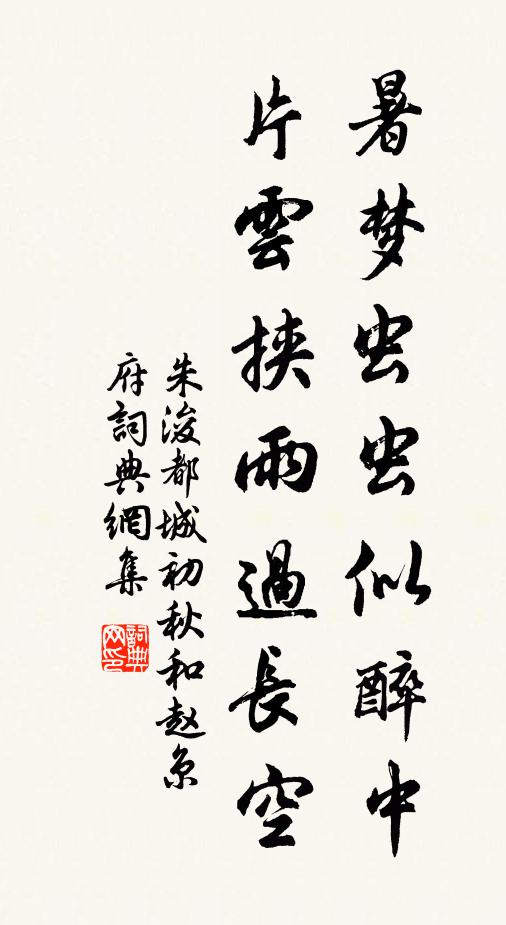 暑梦虫虫似醉中
片雲挟雨過長空
朱浚都城初秋和赵京
府詞典網集
詞典
网印